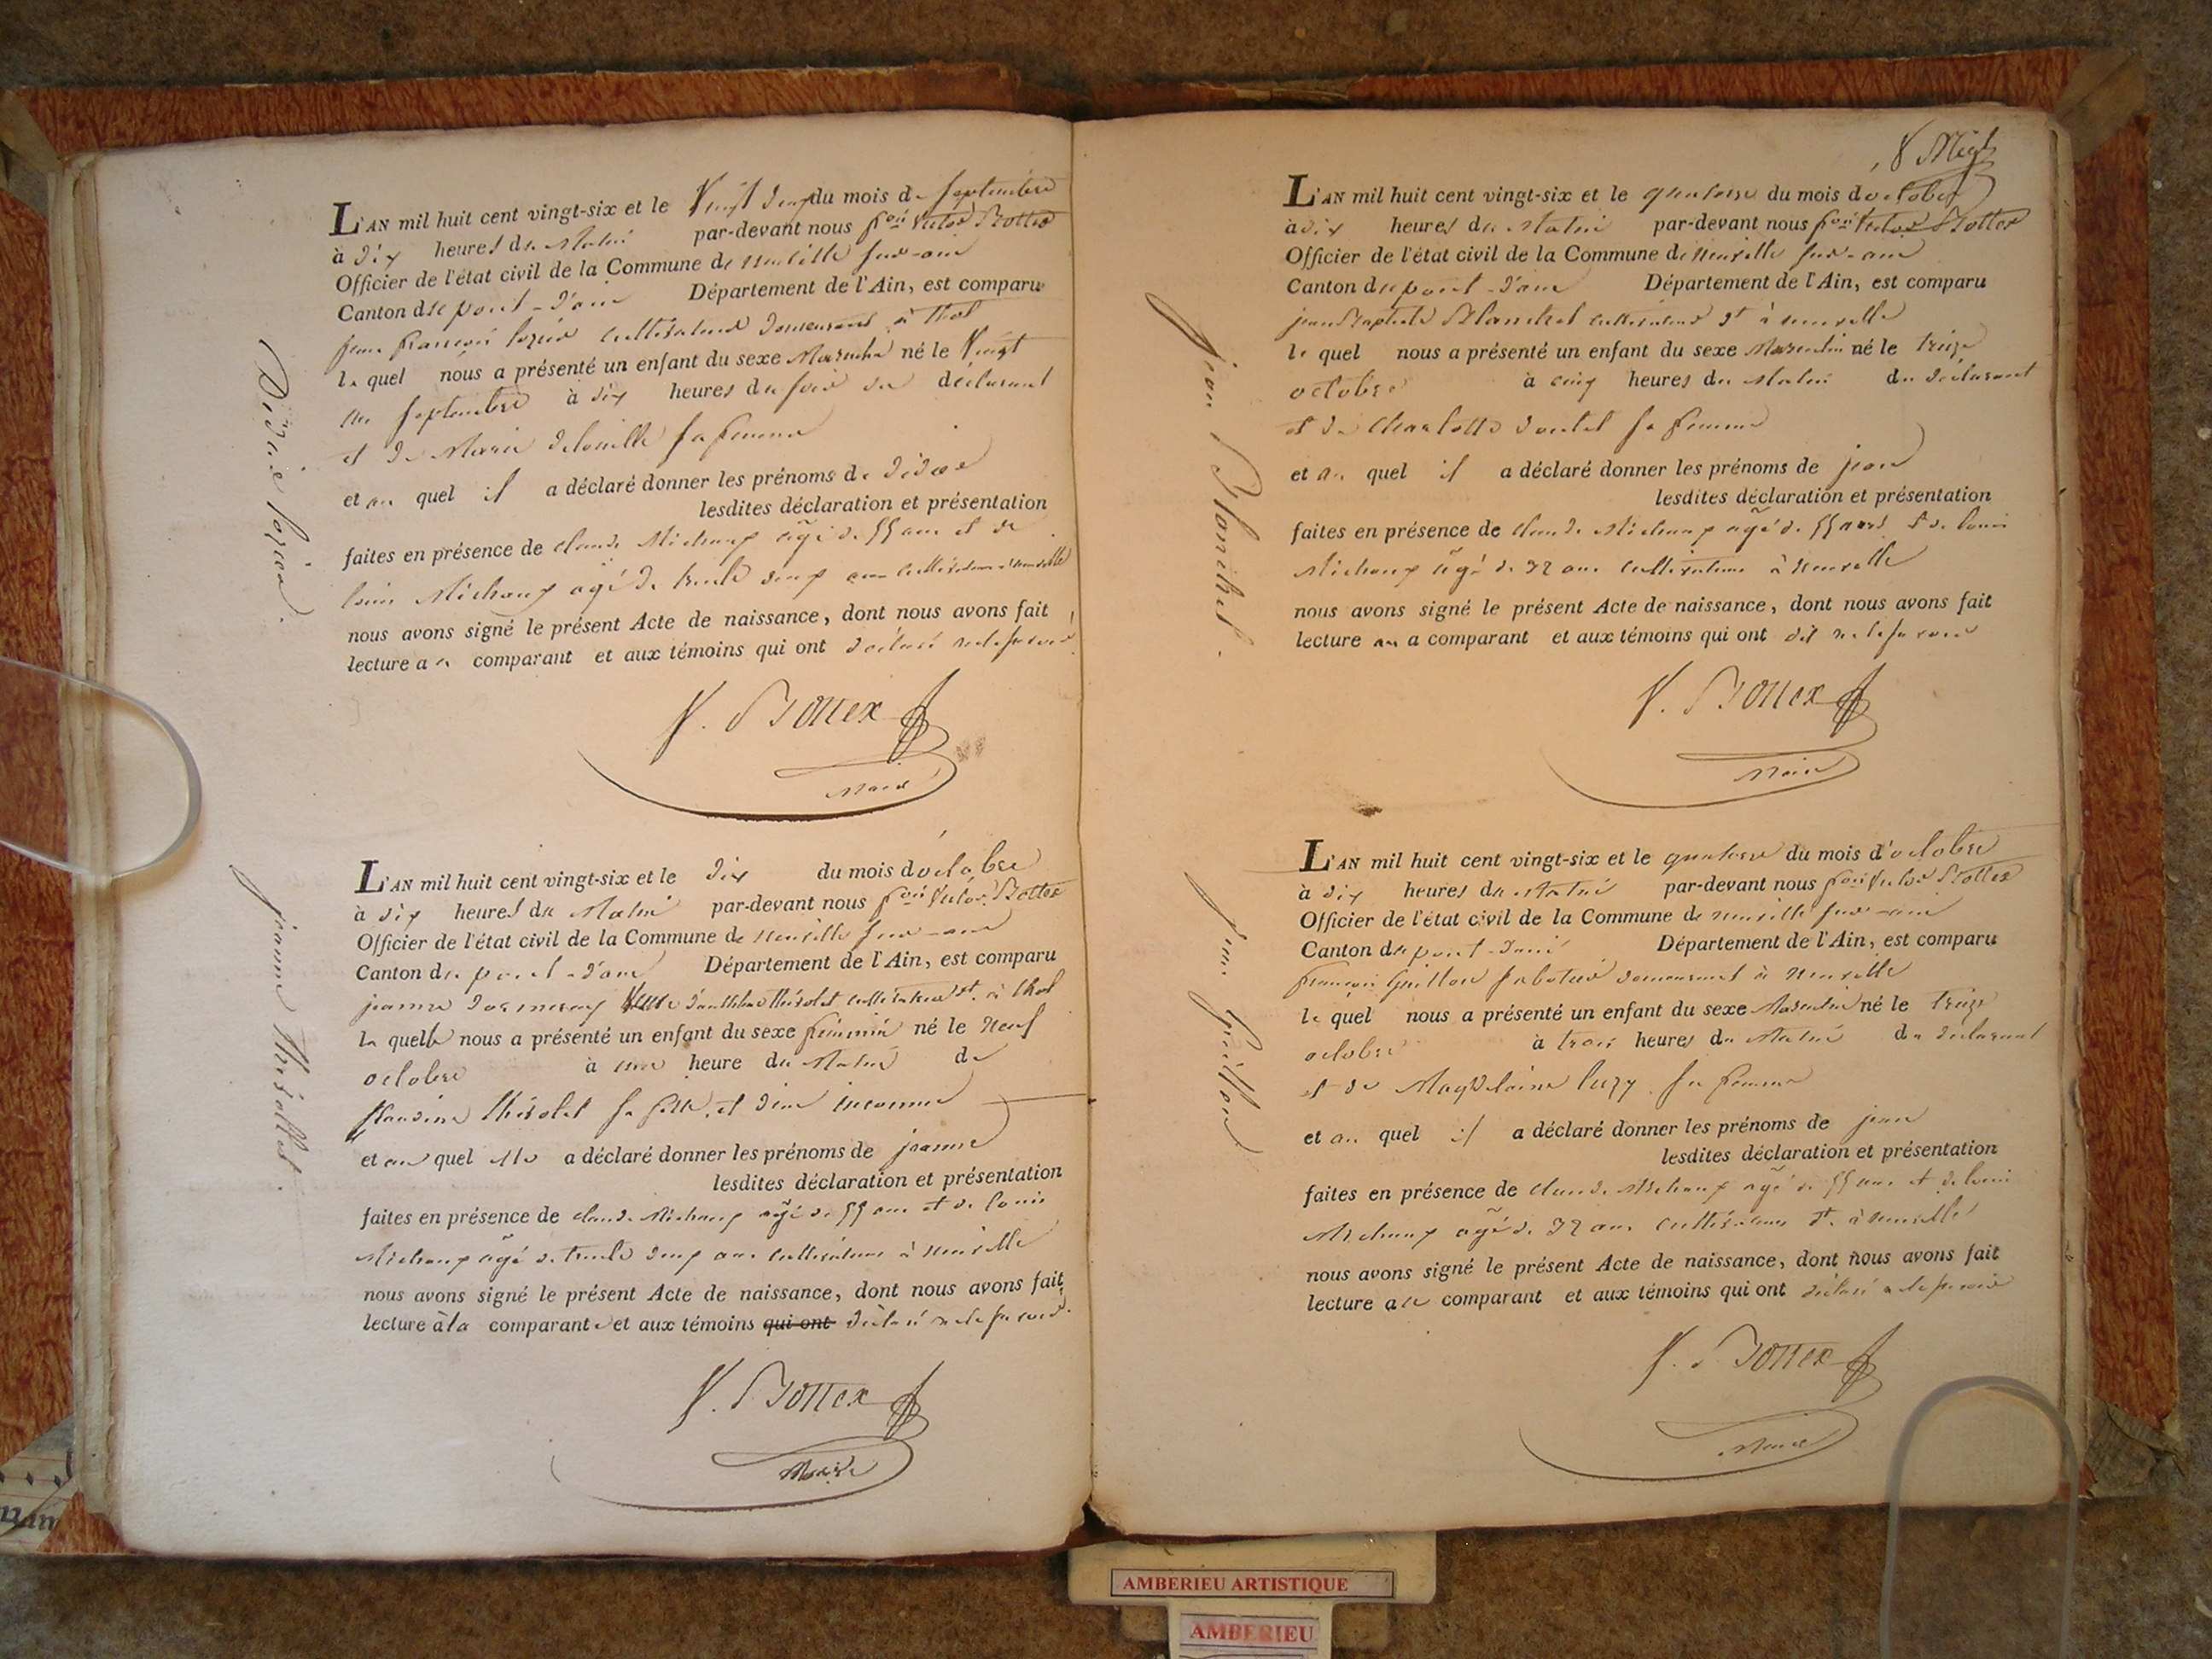 Didié
L'AN mil huit cent vingt-six et le Vingt deux du mois de septembre
à dix heures du Matin par-devant nous f.ois Victor Bottex
Officier de l'état civil de la Commune de neuville sur-ain
Canton de pont-d'ain Département de l'Ain, est comparu
jean françois cultivateur demeurant à thol
le quel nous a présenté un enfant du sexe Masculin né le Vingt
un septembre à dix heures du soir du déclarant
et de Marie sa femme
et au quel il a déclaré donner les prénoms de
lesdites déclaration et présentation
faites en présence de claude Michaux agé de 55 ans et de
louis Michaux agé de trente deux ans cultivateurs à neuville
nous avons signé le présent Acte de naissance, dont nous avons fait
lecture au comparant et aux témoins qui ont déclaré ne le savoir
V. Bottex
Maire
jeanne
L'AN mil huit cent vingt-six et le dix du mois d'octobre
à dix heures du Matin par-devant nous f.ois Victor Bottex
Officier de l'état civil de la Commune de neuville sur-ain
Canton de pont-d'ain Département de l'Ain, est comparu
jeanne à thol
la quelle nous a présenté un enfant du sexe féminin né le neuf
octobre à une heure du Matin de
sa fille, et d'un inconnu
et au quel elle a déclaré donner les prénoms de jeanne
lesdites déclaration et présentation
faites en présence de claude Michaux agé de 55 ans et de louis
Michaux agé de trente deux ans cultivateurs à neuville
nous avons signé le présent Acte de naissance, dont nous avons fait
lecture à la comparante et aux témoins qui ont déclaré ne le savoir.
V. Bottex
Maire
jean Blanchet.
L'AN mil huit cent vingt-six et le quatorze du mois d'octobre
à dix heures du Matin par-devant nous f.ois Victor Bottex
Officier de l'état civil de la Commune de neuville sur-ain
Canton de pont-d'ain Département de l'Ain, est comparu
jean Baptiste Blanchet cultivateur dt à neuville
le quel nous a présenté un enfant du sexe Masculin né le treize
octobre à cinq heures du Matin du déclarant
et de Charlotte sa femme
et au quel il a déclaré donner les prénoms de jean
lesdites déclaration et présentation
faites en présence de claude Michaux agé de 55 ans et de louis
Michaux agé de 32 ans cultivateurs à neuville
nous avons signé le présent Acte de naissance, dont nous avons fait
lecture au comparant et aux témoins qui ont dit ne le savoir
V. Bottex
Maire
jean Guillon
L'AN mil huit cent vingt-six et le quatorze du mois d'octobre
à dix heures du Matin par-devant nous f.ois Victor Bottex
Officier de l'état civil de la Commune de neuville sur-ain
Canton de pont-d'ain Département de l'Ain, est comparu
françois Guillon sabotier demeurant à neuville
le quel nous a présenté un enfant du sexe Masculin né le treize
octobre à trois heures du Matin du déclarant
et de Magdelaine sa femme
et au quel il a déclaré donner les prénoms de jean
lesdites déclaration et présentation
faites en présence de claude Michaux agé de 55 ans et de louis
Michaux agé de 32 ans cultivateurs dt. à neuville
nous avons signé le présent Acte de naissance, dont nous avons fait
lecture au comparant et aux témoins qui ont déclaré ne le savoir
V. Bottex
Maire
AMBERIEU ARTISTIQUE
AMBERIEU